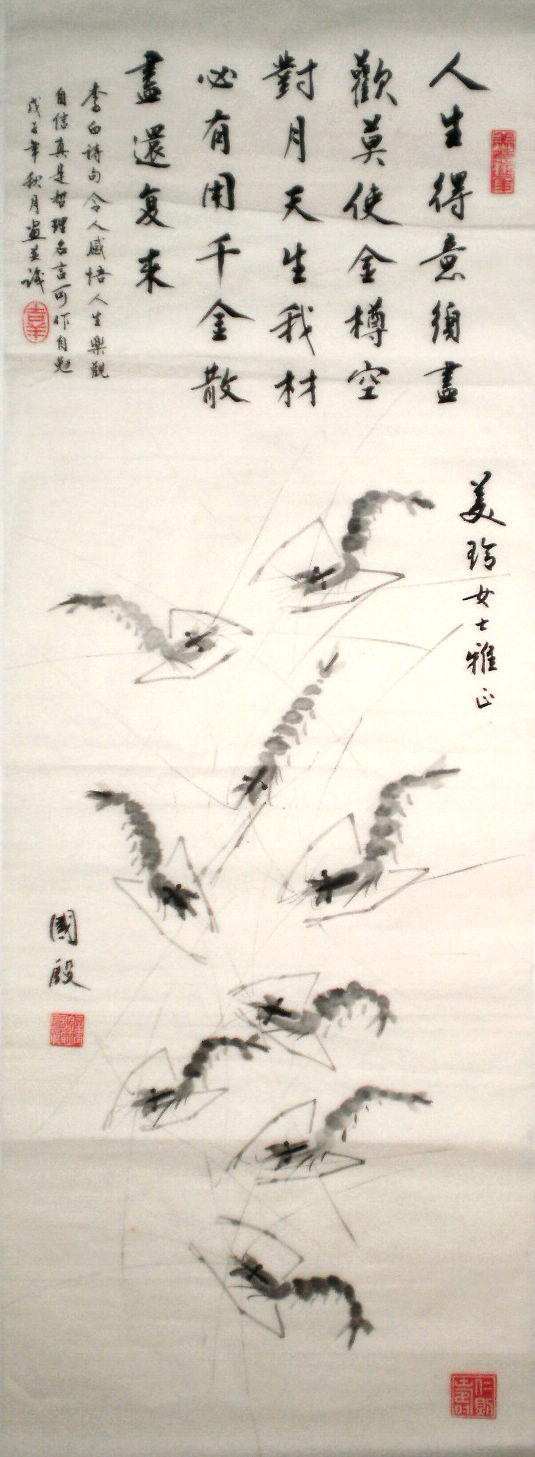 人生得意須盡
歡莫使金樽空
對月天生我材
必有用千金散
盡還复來
李白詩句令人感悟人生樂觀
自信真是哲理名言可作自勉
戊子年秋月畫並識
吉羊
美玲女士雅正
國殷
仁則壽